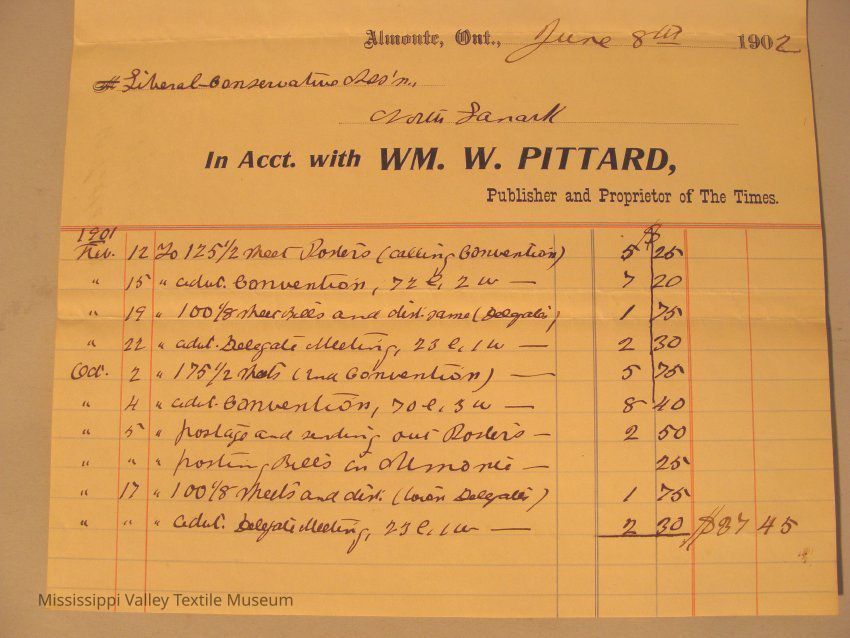 Almonte, Ont., June 8th 1902
Liberal-Conservative Ass'n,
North Lanark
In Acct. with WM. W. PITTARD,
Publisher and Proprietor of The Times.
1901 $
Feb. 12 To 125 1/2 sheet Posters (calling Convention) 5 25
" 15 " advt. Convention, 72 l, 2 w — 7 20
" 19 " 100 1/8 sheet Bills and dist. same (Delegates) 1 75
" 22 " advt. Delegate Meeting, 23 l, 1 w — 2 30
Oct. 2 " 175 1/2 sheets (2nd Convention) — 5 75
" 4 " advt. Convention, 70 l, 3 w — 8 40
" 5 " postage and sending out Posters — 2 50
" " " posting Bills in Almonte — 25
" 17 " 100 1/8 sheets and dist. (town Delegates) 1 75
" " " advt. Delegate Meeting, 23 l, 1 w — 2 30 $37 45
Mississippi Valley Textile Museum